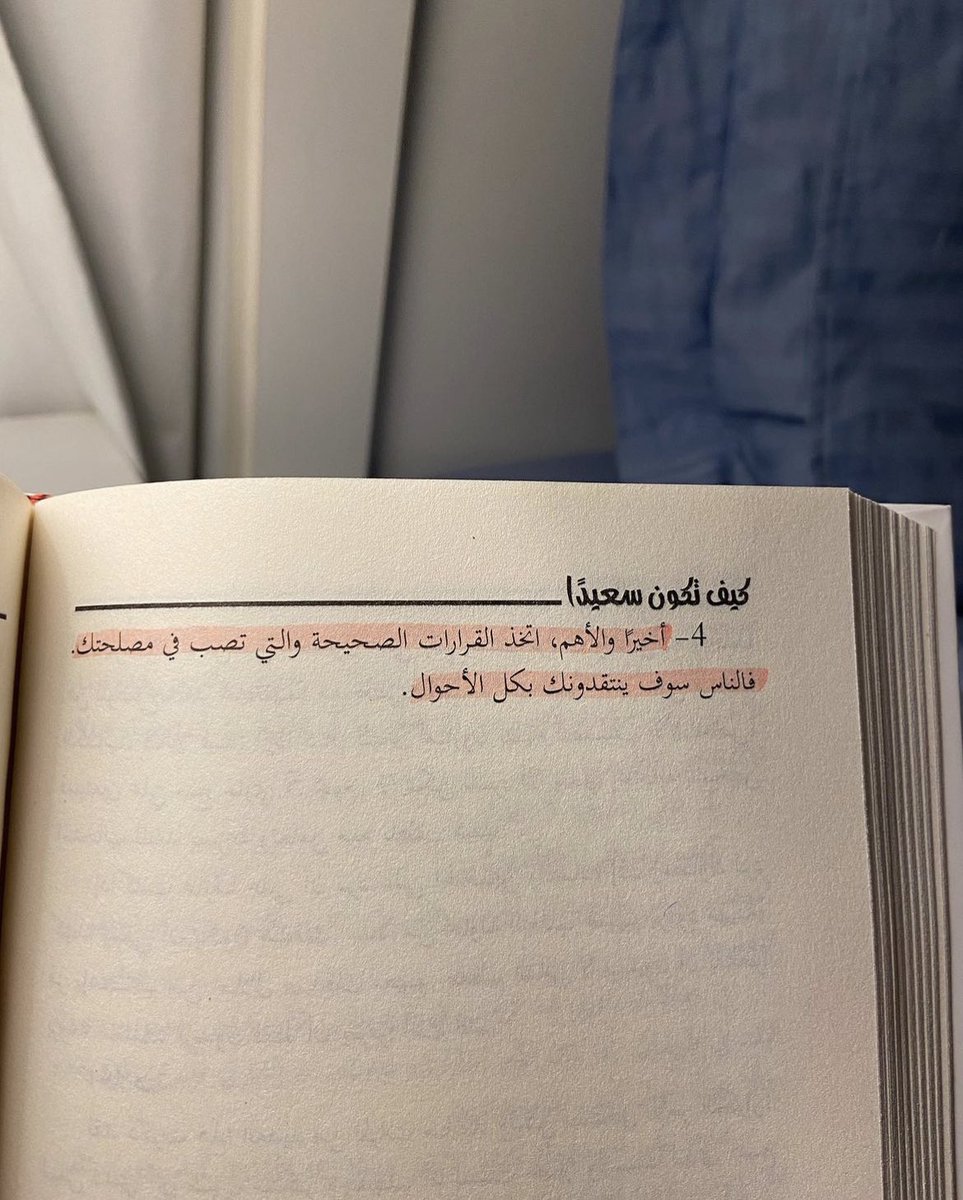 كيف تكون سعيدًا
4- أخيرًا والأهم، اتخذ القرارات الصحيحة والتي تصب في مصلحتك.
فالناس سوف ينتقدونك بكل الأحوال.